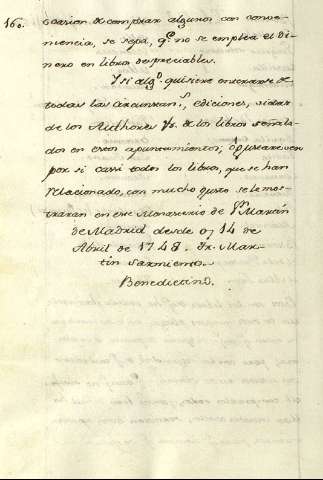 160. ocasion de comprar algunos con conve-
niencia, se sepa, q.e no se emplea el di-
nero en libros despreciables.
Y si alg.o quisiere enterarse de
todas las circunstan.s, ediciones, vidas
de los Authores &c. de los libros señala-
dos en estos apuntamientos, ò quisiere ver
por sí cassi todos los libros, que se han
relacionado, con mucho gusto se le mos-
traràn en este Monasterio de S.n Martin
de Madrid desde oy 14 de
Abril de 1748. Fr. Mar-
tin Sarmiento.
Benedictino.